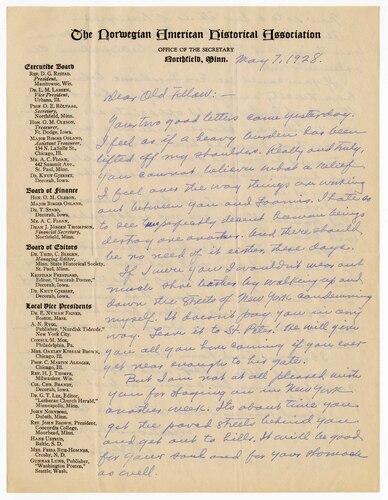 The Norwegian American Historical Association
OFFICE OF THE SECRETARY
Northfield, Minn. May 7, 1928.
Executive Board
REV. D. G. RISTAD,
President,
Manitowoc, Wis.
DR. L. M. LARSEN,
Vice President,
Urbana, Ill.
PROF. O. E. RÖLVAAG,
Secretary,
Northfield, Minn.
HON. O. M. OLESON,
Treasurer,
Ft. Dodge, Iowa.
MAJOR BIRGER OSLAND,
Assistant Treasurer,
134 N. LaSalle St.,
Chicago, Ill.
MR. A. C. FLOAN,
442 Summit Ave.,
St. Paul, Minn.
DR. KNUT GJERSET,
Decorah, Iowa.
Board of Finance
HON. O. M. OLESON,
MAJOR BIRGER OSLAND,
DR. T. STABO,
Decorah, Iowa.
MR. A. C. FLOAN,
DEAN J. JÖRGEN THOMPSON,
Financial Secretary,
Northfield, Minn.
Board of Editors
DR. THEO. C. BLEGEN,
Managing Editor,
Minn. State Historical Society,
St. Paul, Minn.
KRISTIAN PRESTGARD,
Editor, "Decorah Posten,"
Decorah, Iowa.
DR. KNUT GJERSET,
Decorah, Iowa.
Local Vice Presidents
DR. E. NUMAN FISHER,
Boston, Mass.
A. N. RYGG,
Publisher, "Nordisk Tidende,"
New York City.
CONSUL M. MOE,
Philadelphia, Pa.
MRS. OAKLEY KISSAM BROWN,
Chicago, Ill.
PROF. C. MARTIN ALSAGER,
Chicago, Ill.
REV. H. J. THORPE,
Milwaukee, Wis.
COL. CHR. BRANDT,
Decorah, Iowa.
DR. G. T. LEE, Editor,
"Lutheran Church Herald,"
Minneapolis, Minn.
JOHN NORTHROS,
Duluth, Minn.
REV. JOHN BROWN, President,
Concordia College,
Moorhead, Minn.
HANS USTRUD,
Baltic, S. D.
MRS. FRIDA BUE-HOMNES,
Crosby, N. D.
GUNNAR LUND, Publisher,
"Washington Posten,"
Seattle, Wash.
Dear Old Fellow:—
Your two good letters came yesterday.
I feel as if a heavy burden has been
lifted off my shoulders. Really and truly,
you cannot believe what a relief
I feel over the way things are working
out between you and Loomis. I hate so
to see two perfectly decent human beings
destroy one another. And there should
be no need of it either, these days.
If I were you I wouldn't wear out
much shoe leather by walking up and
down the streets of New York condemning
myself. It doesn't pay you in any
way. Leave it to St. Peter. He will give
you all you have coming if you ever
get near enough to his gate.
But I am not at all pleased with
you for staying on in New York
another week. It's about time you
get the paved streets behind you
and get out to hills. It will be good
for your soul and for your stomach
as well.